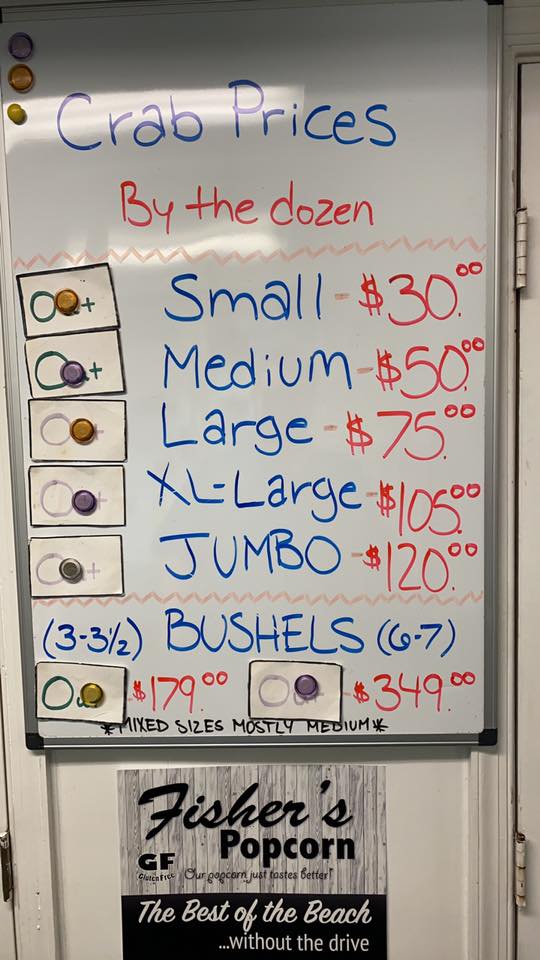 Crab Prices
By the dozen
Small - $30.00
Medium - $50.00
Large - $75.00
XL-Large - $105.00
JUMBO - $120.00
(3-3½) BUSHELS (6-7)
$179.00 $349.00
*MIXED SIZES MOSTLY MEDIUM*
Fisher's
Popcorn
GF
Gluten Free
Our popcorn just tastes better!"
The Best of the Beach
...without the drive